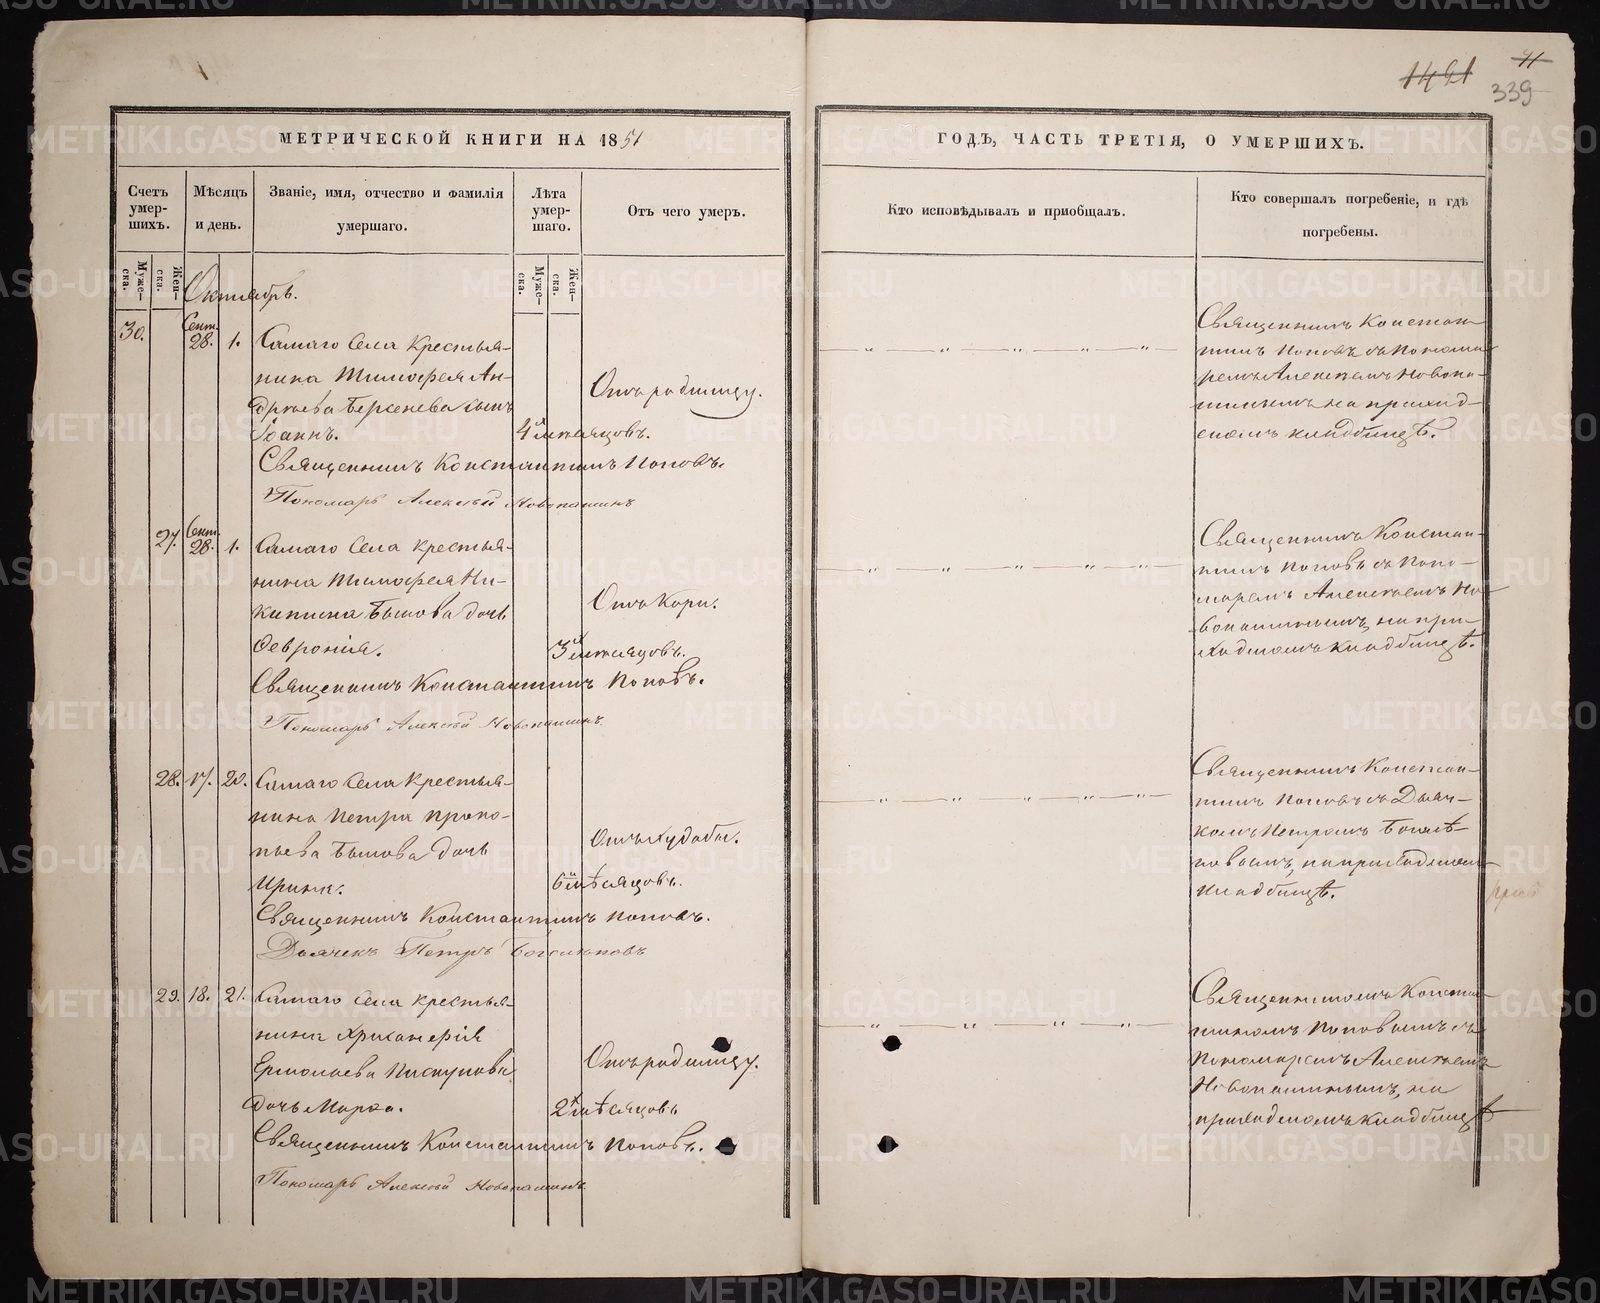 1421
41
339
МЕТРИЧЕСКОЙ КНИГИ НА 1851
ГОДЪ, ЧАСТЬ ТРЕТІЯ, О УМЕРШИХЪ.
Счетъ умер-шихъ.
Мѣсяцъ и день.
Званіе, имя, отчество и фамилія
умершаго.
Лѣта умер-шаго.
Отъ чего умеръ.
Кто исповѣдывалъ и приобщалъ.
Кто совершалъ погребеніе, и гдѣ
погребены.
Муже-ска.
Жен-ска.
Муже-ска.
Жен-ска.
Октябрь.
30.
Сент. 28.
1.
Самаго Села Крестья-
нина Тимофея Ан-
дреева Берсенева сынъ
Іоаннъ.
4 мѣсяцовъ.
Отъ родимцу.
Священникъ Константинъ Поповъ.
Пономарь Алексѣй Новопашинъ
Священникъ Констан-
тинъ Поповъ съ Понома-
ремъ Алексѣемъ Новопа-
шинымъ на приход-
скомъ кладбищѣ.
27.
Сент. 28.
1.
Самаго Села крестья-
нина Тимофея Ни-
китина Бызова дочь
Февронія.
3 мѣсяцовъ.
Отъ Кори.
Священникъ Константинъ Поповъ.
Пономарь Алексѣй Новопашинъ
Священникъ Констан-
тинъ Поповъ съ Поно-
маремъ Алексѣемъ Но-
вопашинымъ, на при-
ходскомъ кладбищѣ.
28.
17.
20.
Самаго Села Крестья-
нина Петра Проко-
пьева Бызова дочь
Ирина.
6 мѣсяцовъ.
Отъ худобы.
Священникъ Константинъ Поповъ.
Дьячекъ Петръ Боголѣповъ
Священникъ Констан-
тинъ Поповъ съ Дьяч-
комъ Петромъ Боголѣ-
повымъ, на приходскомъ
кладбищѣ.
29.
18.
21.
Самаго Села крестья-
нина Хрисанѳія
Ермолаева Пискунова
дочь Марѳа.
2 мѣсяцовъ
Отъ родимцу.
Священникъ Константинъ Поповъ.
Пономарь Алексѣй Новопашинъ
Священникомъ Констан-
тиномъ Поповымъ съ
Пономаремъ Алексѣемъ
Новопашинымъ, на
приходскомъ кладбищѣ
METRIKI.GASO-URAL.RU